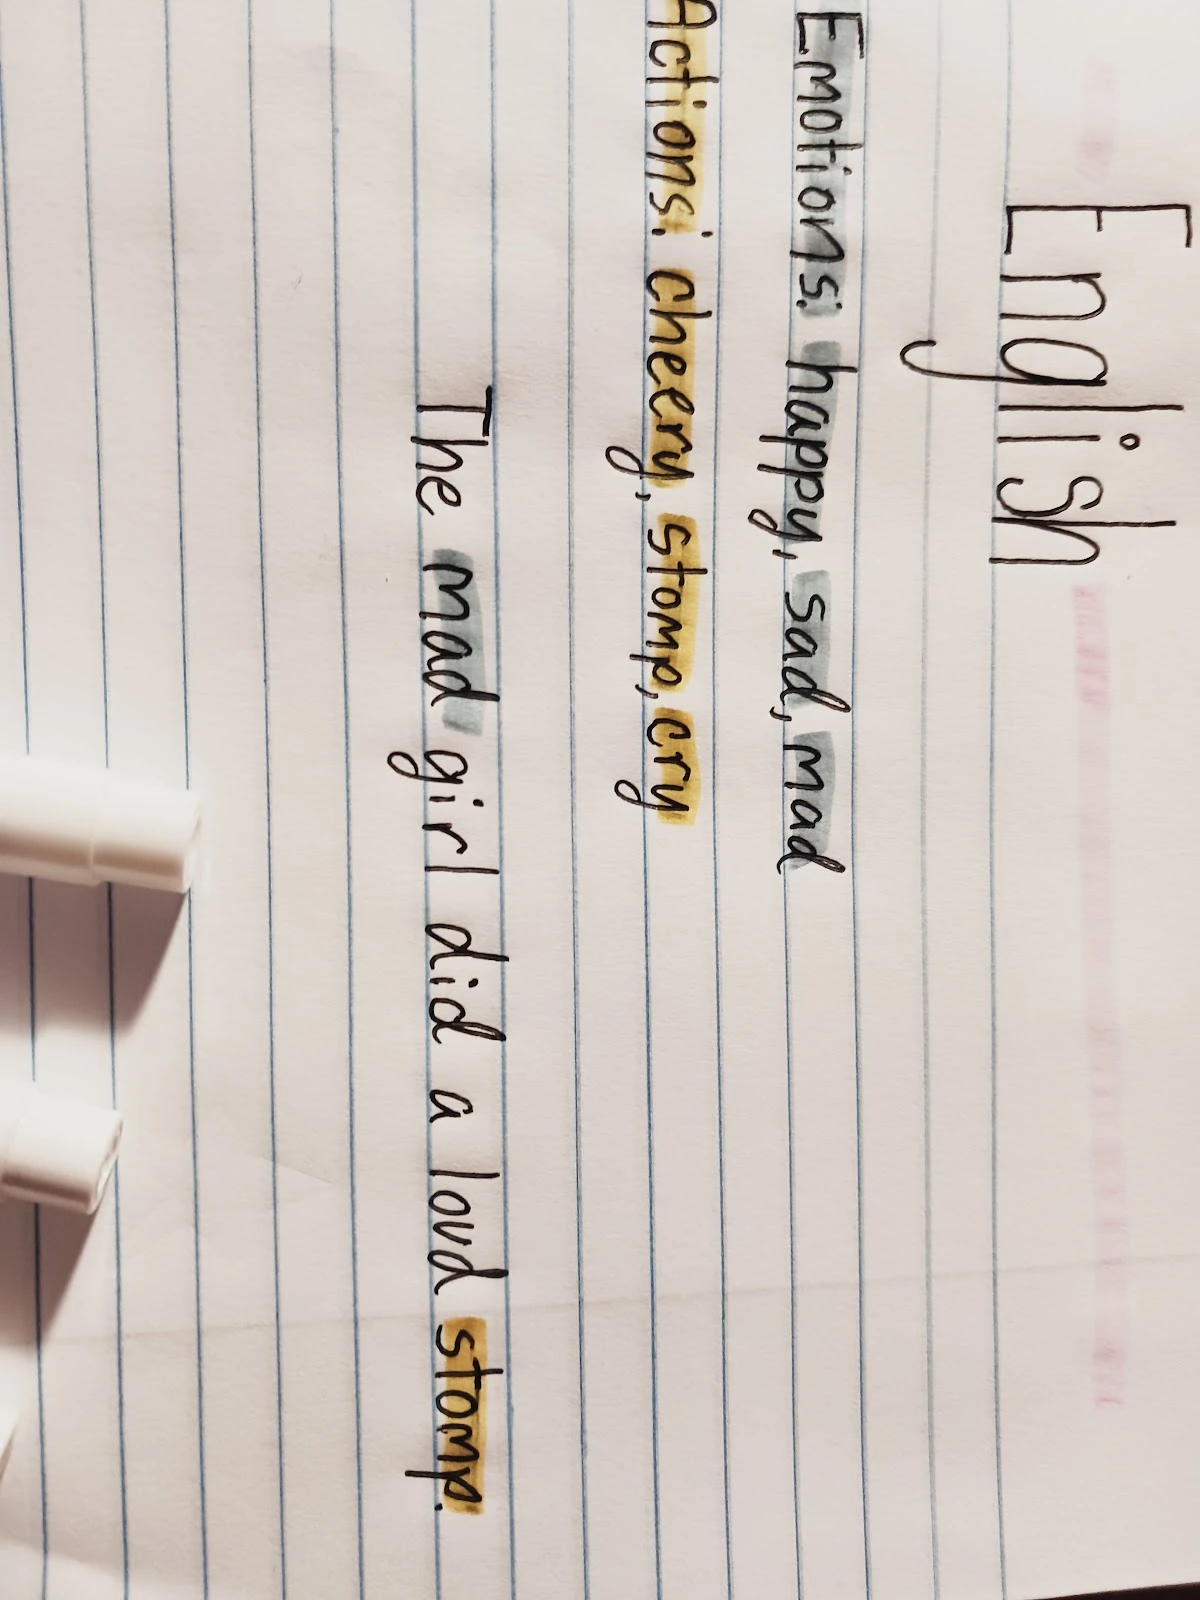 English
Emotions: happy, sad, mad
Actions: cheery, stomp, cry
The mad girl did a loud stomp.